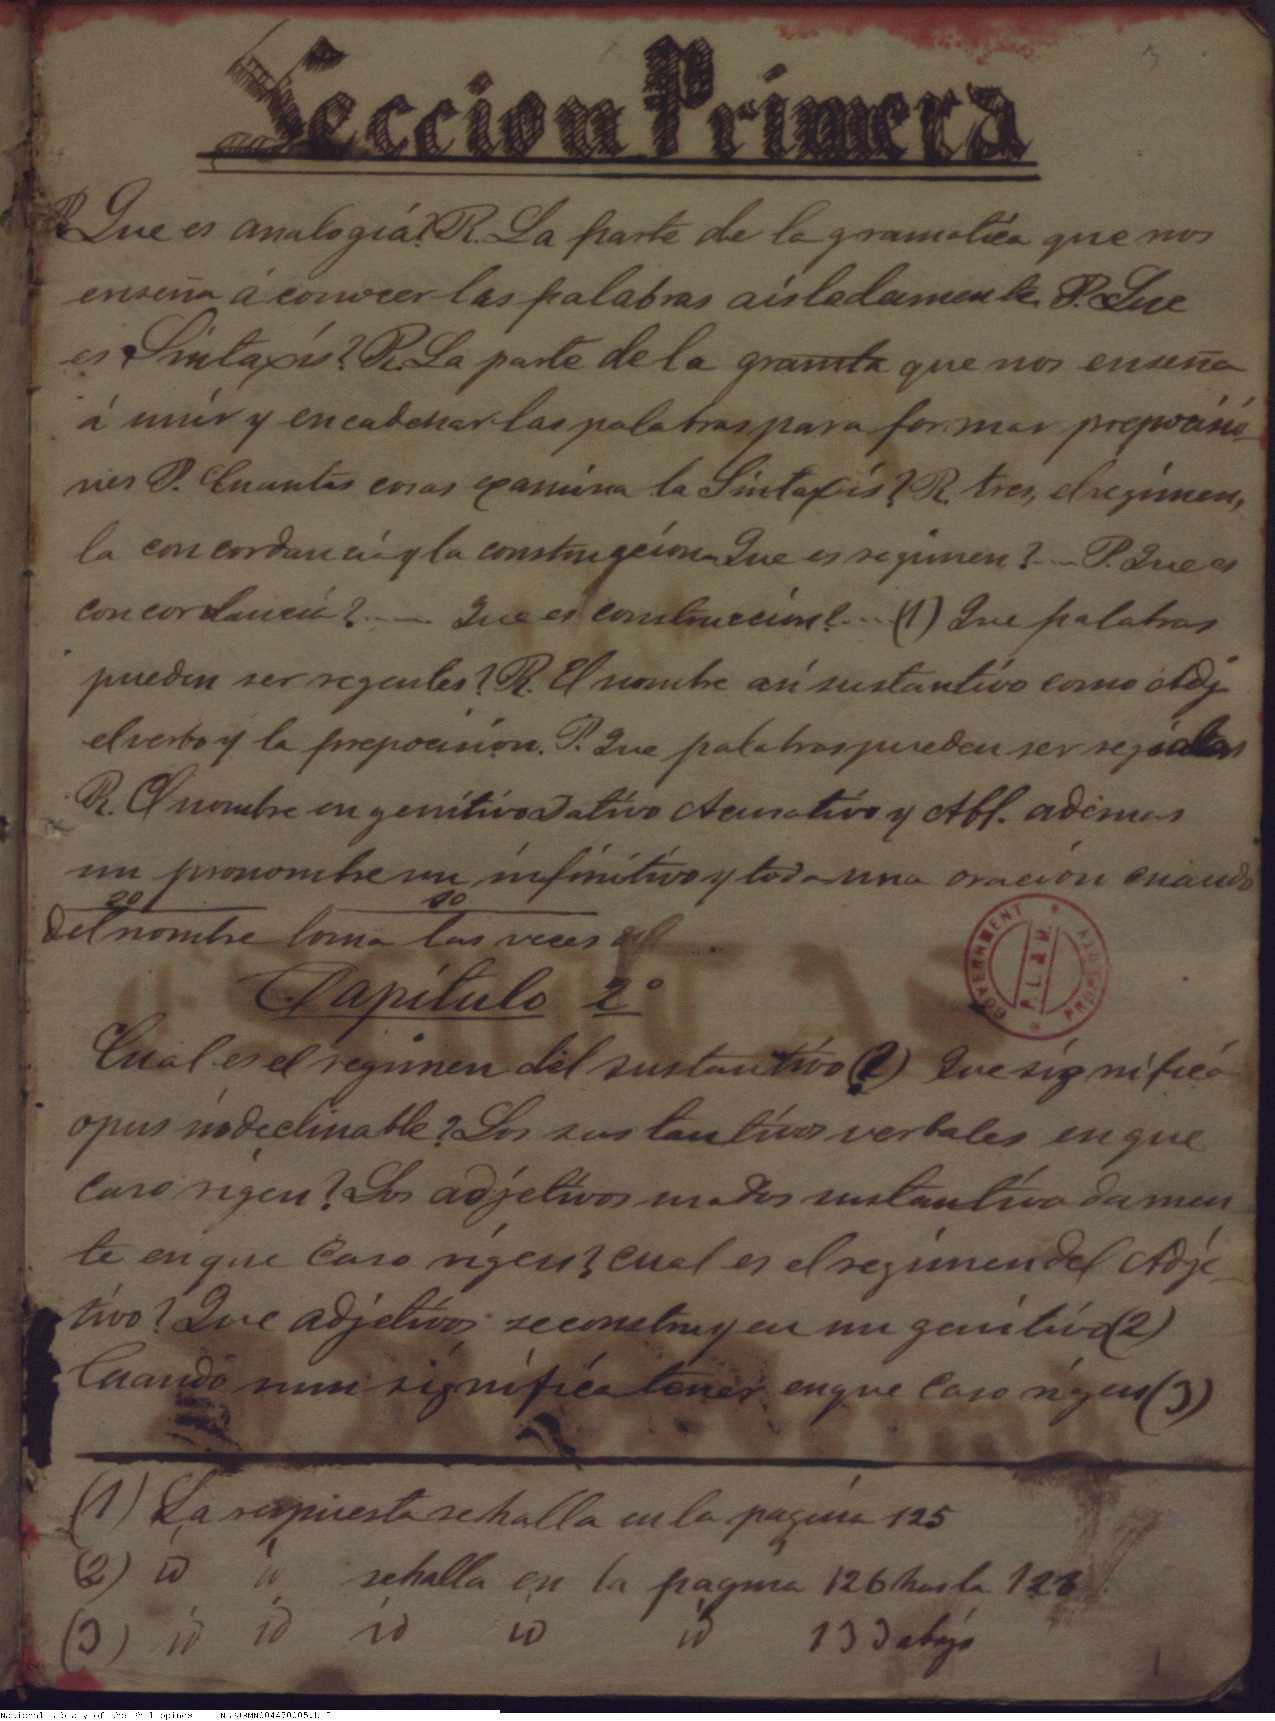 Leccion Primera
P. Que es analogiá? R. La parte de la gramatica que nos
enseña á conocer las palabras aisladamente. P. Que
es Sintaxis? R. La parte de la gramta que nos enseña
á unir y encadenar las palabras para formar preposicio-
nes P. Cuantas cosas examina la Sintaxis? R. tres, el regimen,
la concordancia y la construccion Que es regimen?.... P. Que es
concordancia?.... Que es construccion?.... (1) Que palabras
pueden ser regentes? R. El nombre asi sustantivo como Adj.
el verbo y la preposición. P. Que palabras pueden ser regidas
R. El nombre en genitivo Dativo Acusativo y Abl. ademas
un pronombre un infinitivo y toda una oración cuando
del nombre toma las veces del
Capítulo 2°
Cual es el regimen del sustantivo (2) Que significa
opus indeclinable? Los sustantivos verbales en que
caso rigen? Los adjetivos usados sustantivadamen
te en que Caso rigen? cual es el regimen del Adje-
tivo? Que adjetivos se construyen en un genitivo (2)
Cuando significa tener en que Caso rigen (3)
(1) La respuesta se halla en la pagina 125
(2) id id se halla en la pagina 126 hasta 128
(3) id id id id id 133 abajo
GOVERNMENT PROPERTY
P. L. & M.
National Library of the Philippines